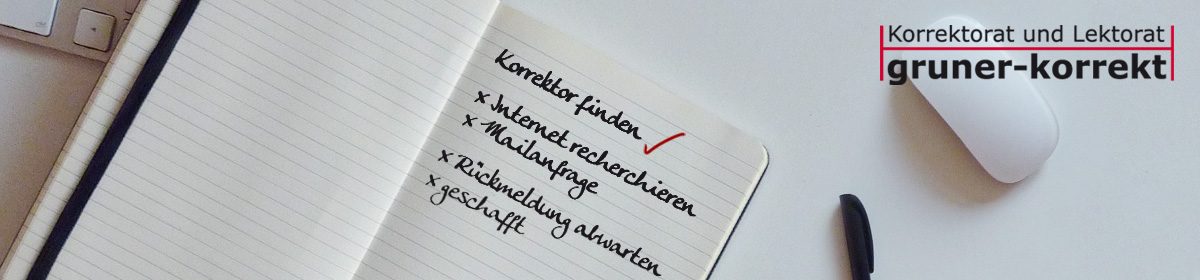 Korrektorat und Lektorat
gruner-korrekt
Korrektor finden ✓
x Internet recherchieren
x Mailanfrage
x Rückmeldung abwarten
x geschafft